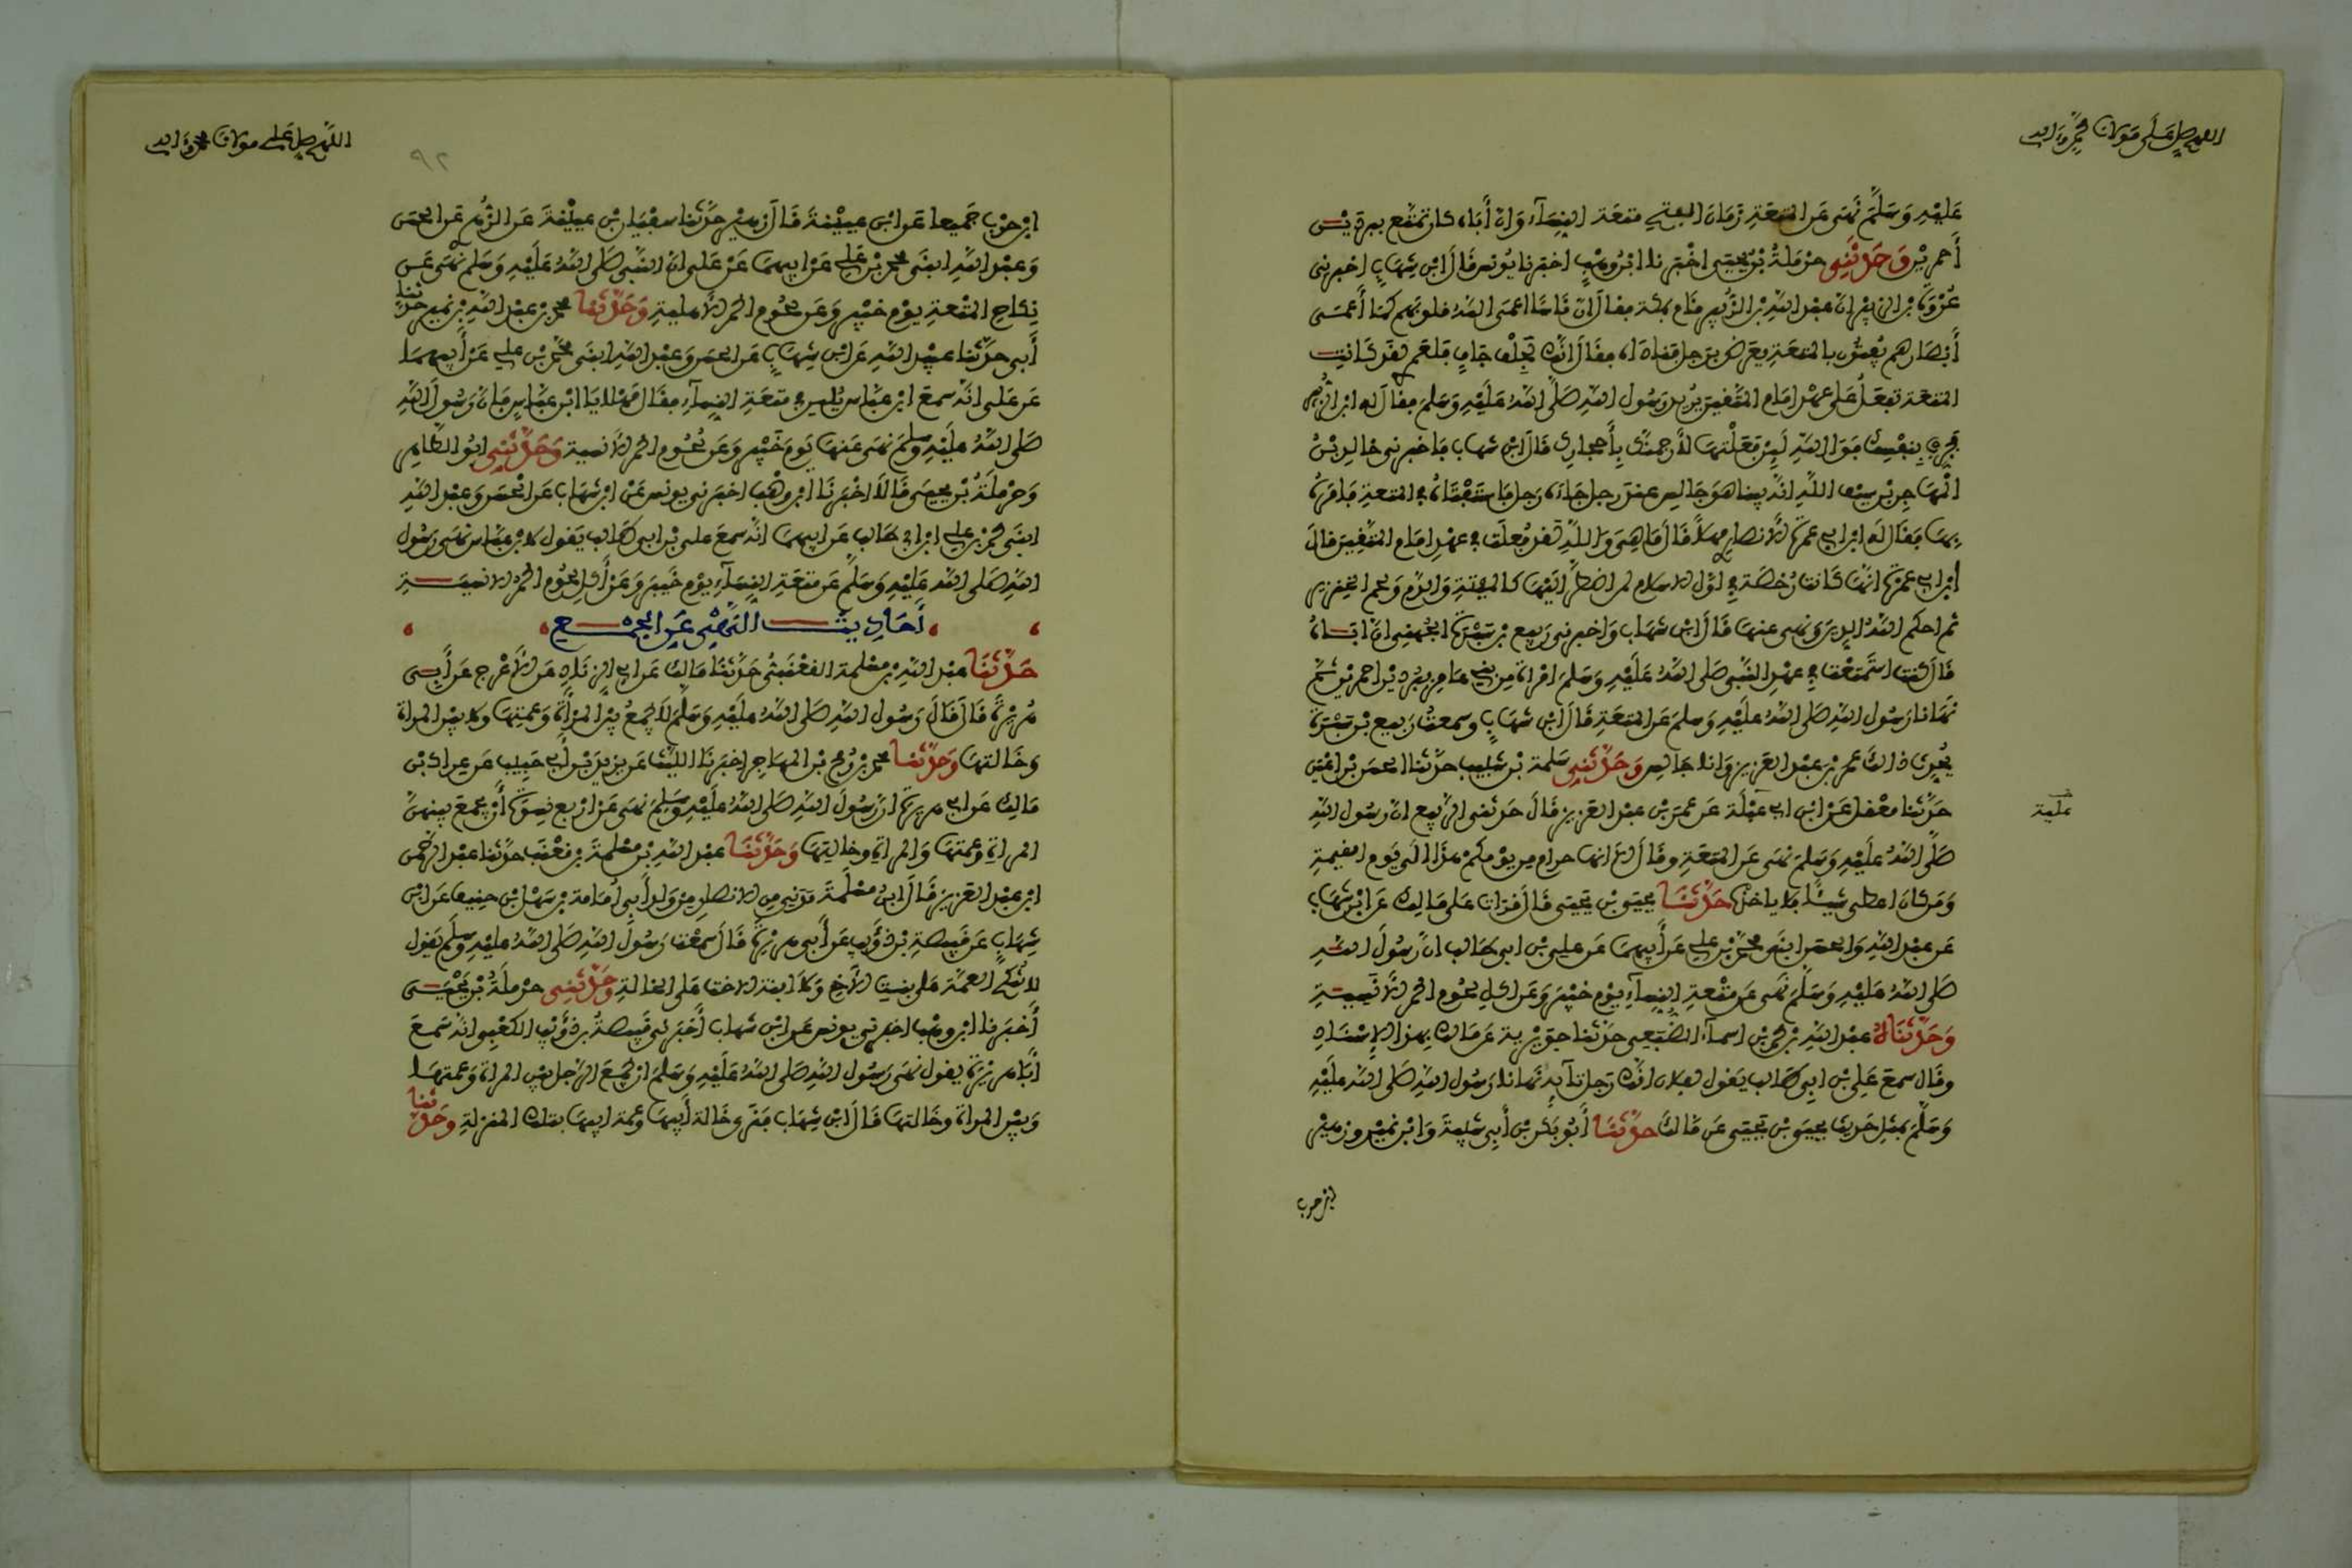 اللهم صل على مولانا محمد واله
عليه وسلم نهى عن المتعة زمان الفتح متعة النساء وان أباه كان تمتع ببردين
أحمرين وحدثني حرملة بن يحيى اخبرنا ابن وهب اخبرنا يونس قال ابن شهاب اخبرني
عروة بن الزبير ان عبد الله بن الزبير قام بمكة فقال ان ناسا اعمى الله قلوبهم كما أعمى
أبصارهم يفتون بالمتعة يعرض برجل فناداه فقال انك لجلف جاف فلعمر لقد كانت
المتعة تفعل على عهد امام المتقين يريد رسول الله صلى الله عليه وسلم فقال له ابن الزبير
فجرب بنفسك فوالله لئن فعلتها لأرجمنك بأحجارك قال ابن شهاب فاخبرني خالد بن
المهاجر بن سيف الله انه بينا هو جالس عند رجل جاءه رجل فاستفتاه في المتعة فامره
بها فقال له ابن ابي عمرة الأنصاري مهلا قال ما هي والله لقد فعلت في عهد امام المتقين قال
ابن ابي عمرة انها كانت رخصة في اول الاسلام لمن اضطر اليها كالميتة والدم ولحم الخنزير
ثم احكم الله الدين ونهى عنها قال ابن شهاب واخبرني ربيع بن سبرة الجهني ان اباه
قال كنت استمتعت في عهد النبي صلى الله عليه وسلم امراة من بني عامر ببردين احمرين ثم
نهانا رسول الله صلى الله عليه وسلم عن المتعة قال ابن شهاب وسمعت ربيع بن سبرة
يحدث ذالك عمر بن عبد العزيز وانا جالس وحدثني سلمة بن شبيب حدثنا الحسن بن اعين
حدثنا معقل عن ابن ابي عبلة عن عمر بن عبد العزيز قال حدثني الربيع ان رسول الله
صلى الله عليه وسلم نهى عن المتعة وقال الا انها حرام من يومكم هذا الى يوم القيمة
ومن كان اعطى شيئا فلا ياخذه حدثنا يحيى بن يحيى قال قرات على مالك عن ابن شهاب
عن عبد الله والحسن ابني محمد بن علي عن أبيهما عن علي بن ابي طالب ان رسول الله
صلى الله عليه وسلم نهى عن متعة النساء يوم خيبر وعن اكل لحوم الحمر الأنسية
وحدثناه عبد الله بن محمد بن اسماء الضبعي حدثنا جويرية عن مالك بهذا الإسناد
وقال سمع علي بن ابي طالب يقول لفلان انك رجل تائه نهانا رسول الله صلى الله عليه
وسلم بمثل حديث يحيى بن يحيى عن مالك حدثنا أبو بكر بن أبي شيبة وابن نمير وزهير
ابن حرب
اللهم صل على مولانا محمد واله
٩٢
ابن حرب جميعا عن ابن عيينة قال زهير حدثنا سفيان بن عيينة عن الزهري عن الحسن
وعبد الله ابني محمد بن علي عن ابيهما عن علي ان النبي صلى الله عليه وسلم نهى عن
نكاح المتعة يوم خيبر وعن لحوم الحمر الأهلية وحدثنا محمد بن عبد الله بن نمير حدثنا
أبي حدثنا عبيد الله عن ابن شهاب عن الحسن وعبد الله ابني محمد بن علي عن أبيهما
عن علي انه سمع ابن عباس يلين في متعة النساء فقال مهلا يا ابن عباس فان رسول الله
صلى الله عليه وسلم نهى عنها يوم خيبر وعن لحوم الحمر الأنسية وحدثني ابو الطاهر
وحرملة بن يحيى قالا اخبرنا ابن وهب اخبرني يونس عن ابن شهاب عن الحسن وعبد الله
ابني محمد بن علي ابن ابي طالب عن ابيهما انه سمع علي بن ابي طالب يقول لابن عباس نهى رسول
الله صلى الله عليه وسلم عن متعة النساء يوم خيبر وعن أكل لحوم الحمر الانسية
أحاديث النهي عن الجمع
حدثنا عبد الله بن مسلمة القعنبي حدثنا مالك عن ابي الزناد عن الأعرج عن أبي
هريرة قال قال رسول الله صلى الله عليه وسلم لا يجمع بين المرأة وعمتها ولا بين المراة
وخالتها وحدثنا محمد بن رمح بن المهاجر اخبرنا الليث عن يزيد بن أبي حبيب عن عراك بن
مالك عن ابي هريرة ان رسول الله صلى الله عليه وسلم نهى عن اربع نسوة أن يجمع بينهن
المراة وعمتها والمراة وخالتها وحدثنا عبد الله بن مسلمة بن قعنب حدثنا عبد الرحمن
ابن عبد العزيز قال ابن مسلمة مدني من الانصار من ولد أبي أمامة بن سهل بن حنيف عن ابن
شهاب عن قبيصة بن ذؤيب عن أبي هريرة قال سمعت رسول الله صلى الله عليه وسلم يقول
لا تنكح العمة على بنت الأخ ولا ابنة الاخت على الخالة وحدثني حرملة بن يحيى
أخبرنا ابن وهب اخبرني يونس عن ابن شهاب أخبرني قبيصة بن ذؤيب الكعبي انه سمع
ابا هريرة يقول نهى رسول الله صلى الله عليه وسلم ان يجمع الرجل بين المراة وعمتها
وبين المراة وخالتها قال ابن شهاب فنرى خالة أبيها وعمة ابيها بتلك المنزلة وحدثنا